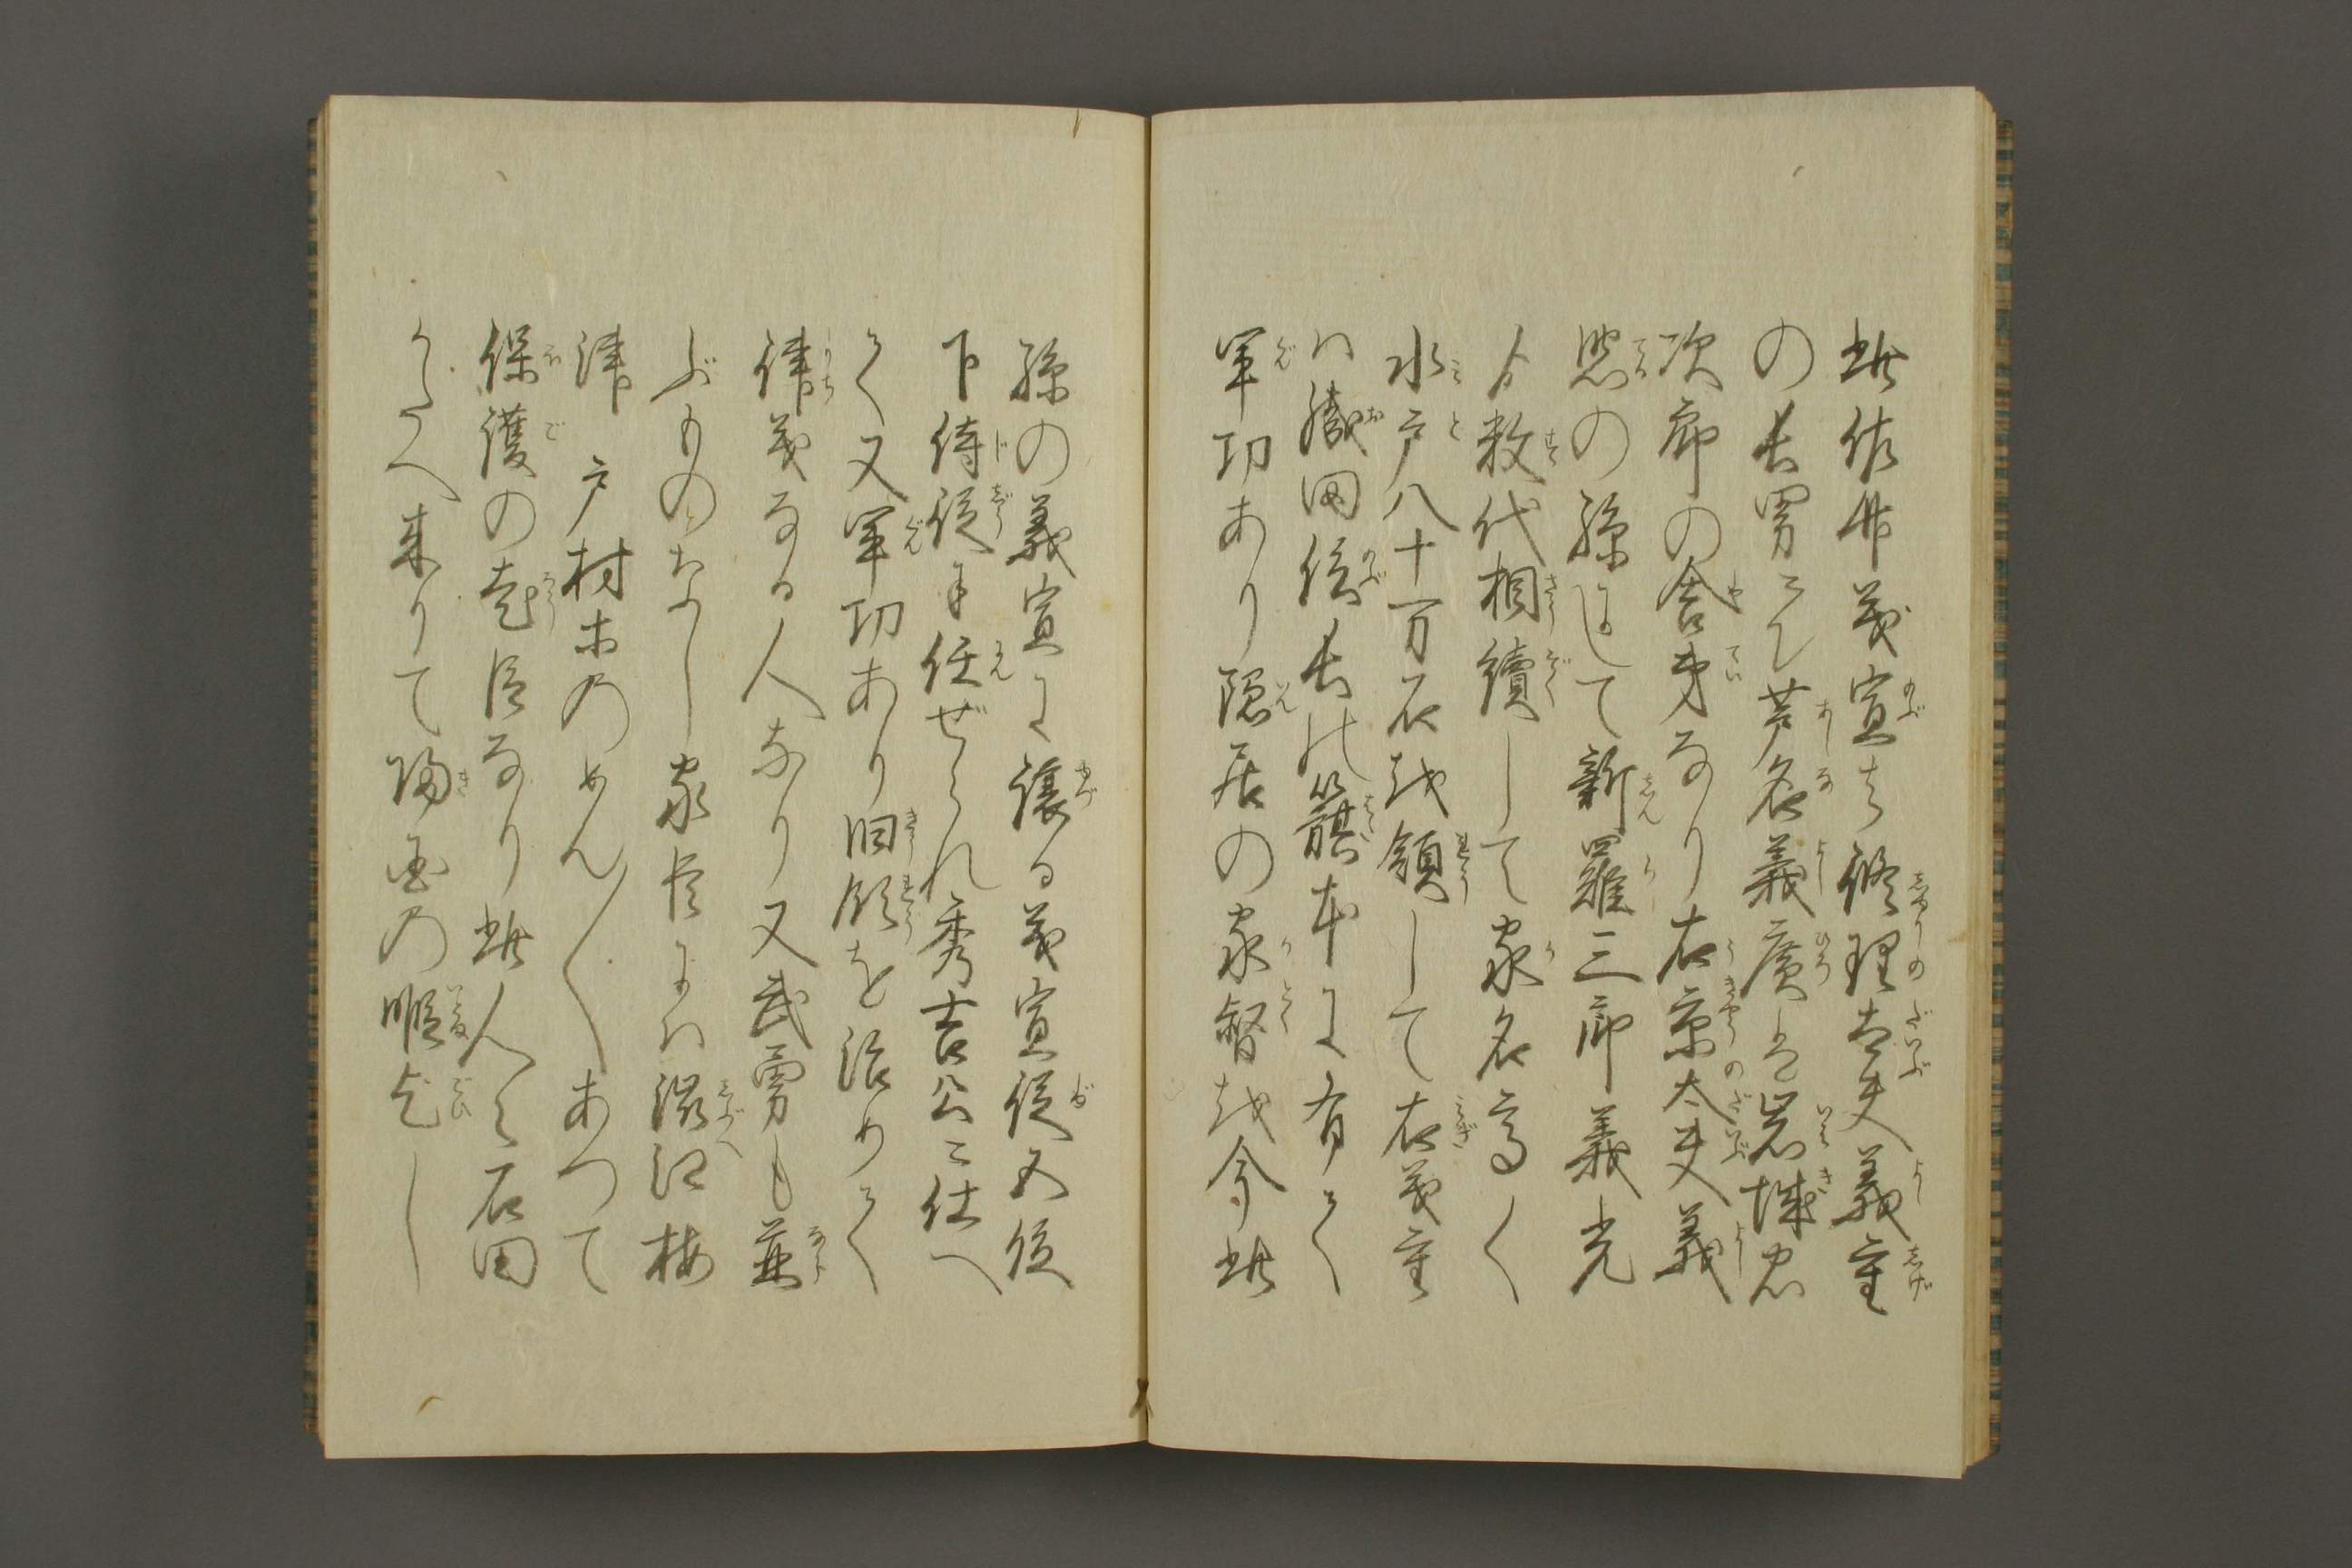 此佐竹義宣は修理太夫義重
の長男にて芦名義廣岩城忠
次郎の舎弟なり右京太夫義
照の孫にして新羅三郎義光
より数代相續して家名高く
水戸八十万石を領して右義重
ハ織田信長の籏本に有て
軍功あり隠居の家督を今此
孫の義宣に譲る義宣従五位
下侍従に任ぜられ秀吉公に仕へ
て又軍功あり旧領を治めて
律義なる人なり又武勇も並
ぶものなし家臣にハ澁江梅
津戸村等のめん〳〵あつて
保護の老臣なり此人々石田
かたへ来りて帰国の暇乞し